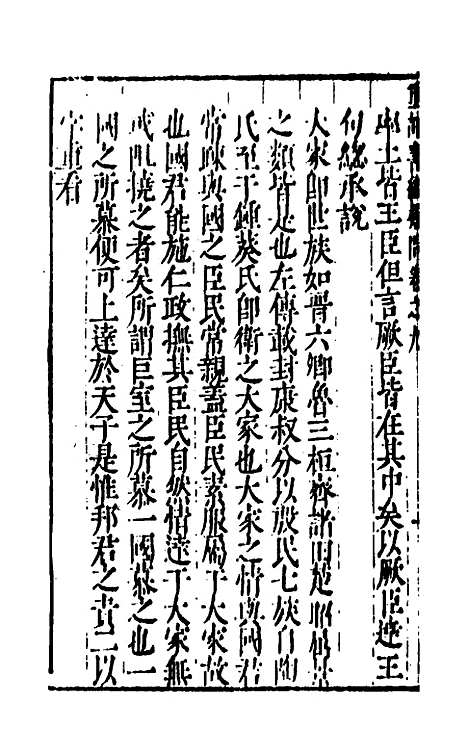 書經疑問卷之九
率土皆王臣但言厥臣皆在其中矣以厥臣達王
句總承說
大家即世族如晉六卿魯三桓齊諸田楚昭屈景
之類皆是也左傳載封康叔分以殷民七族自陶
氏至于鍾葵氏即衛之大家也大家之情與國君
常踈與國之臣民常親蓋臣民素服屬于大家故
也國君能施仁政撫其臣民自然情達于大家無
或阻撓之者矣所謂巨室之所慕一國慕之也一
國之所慕便可上達於天子是惟邦君之責二以
字重看